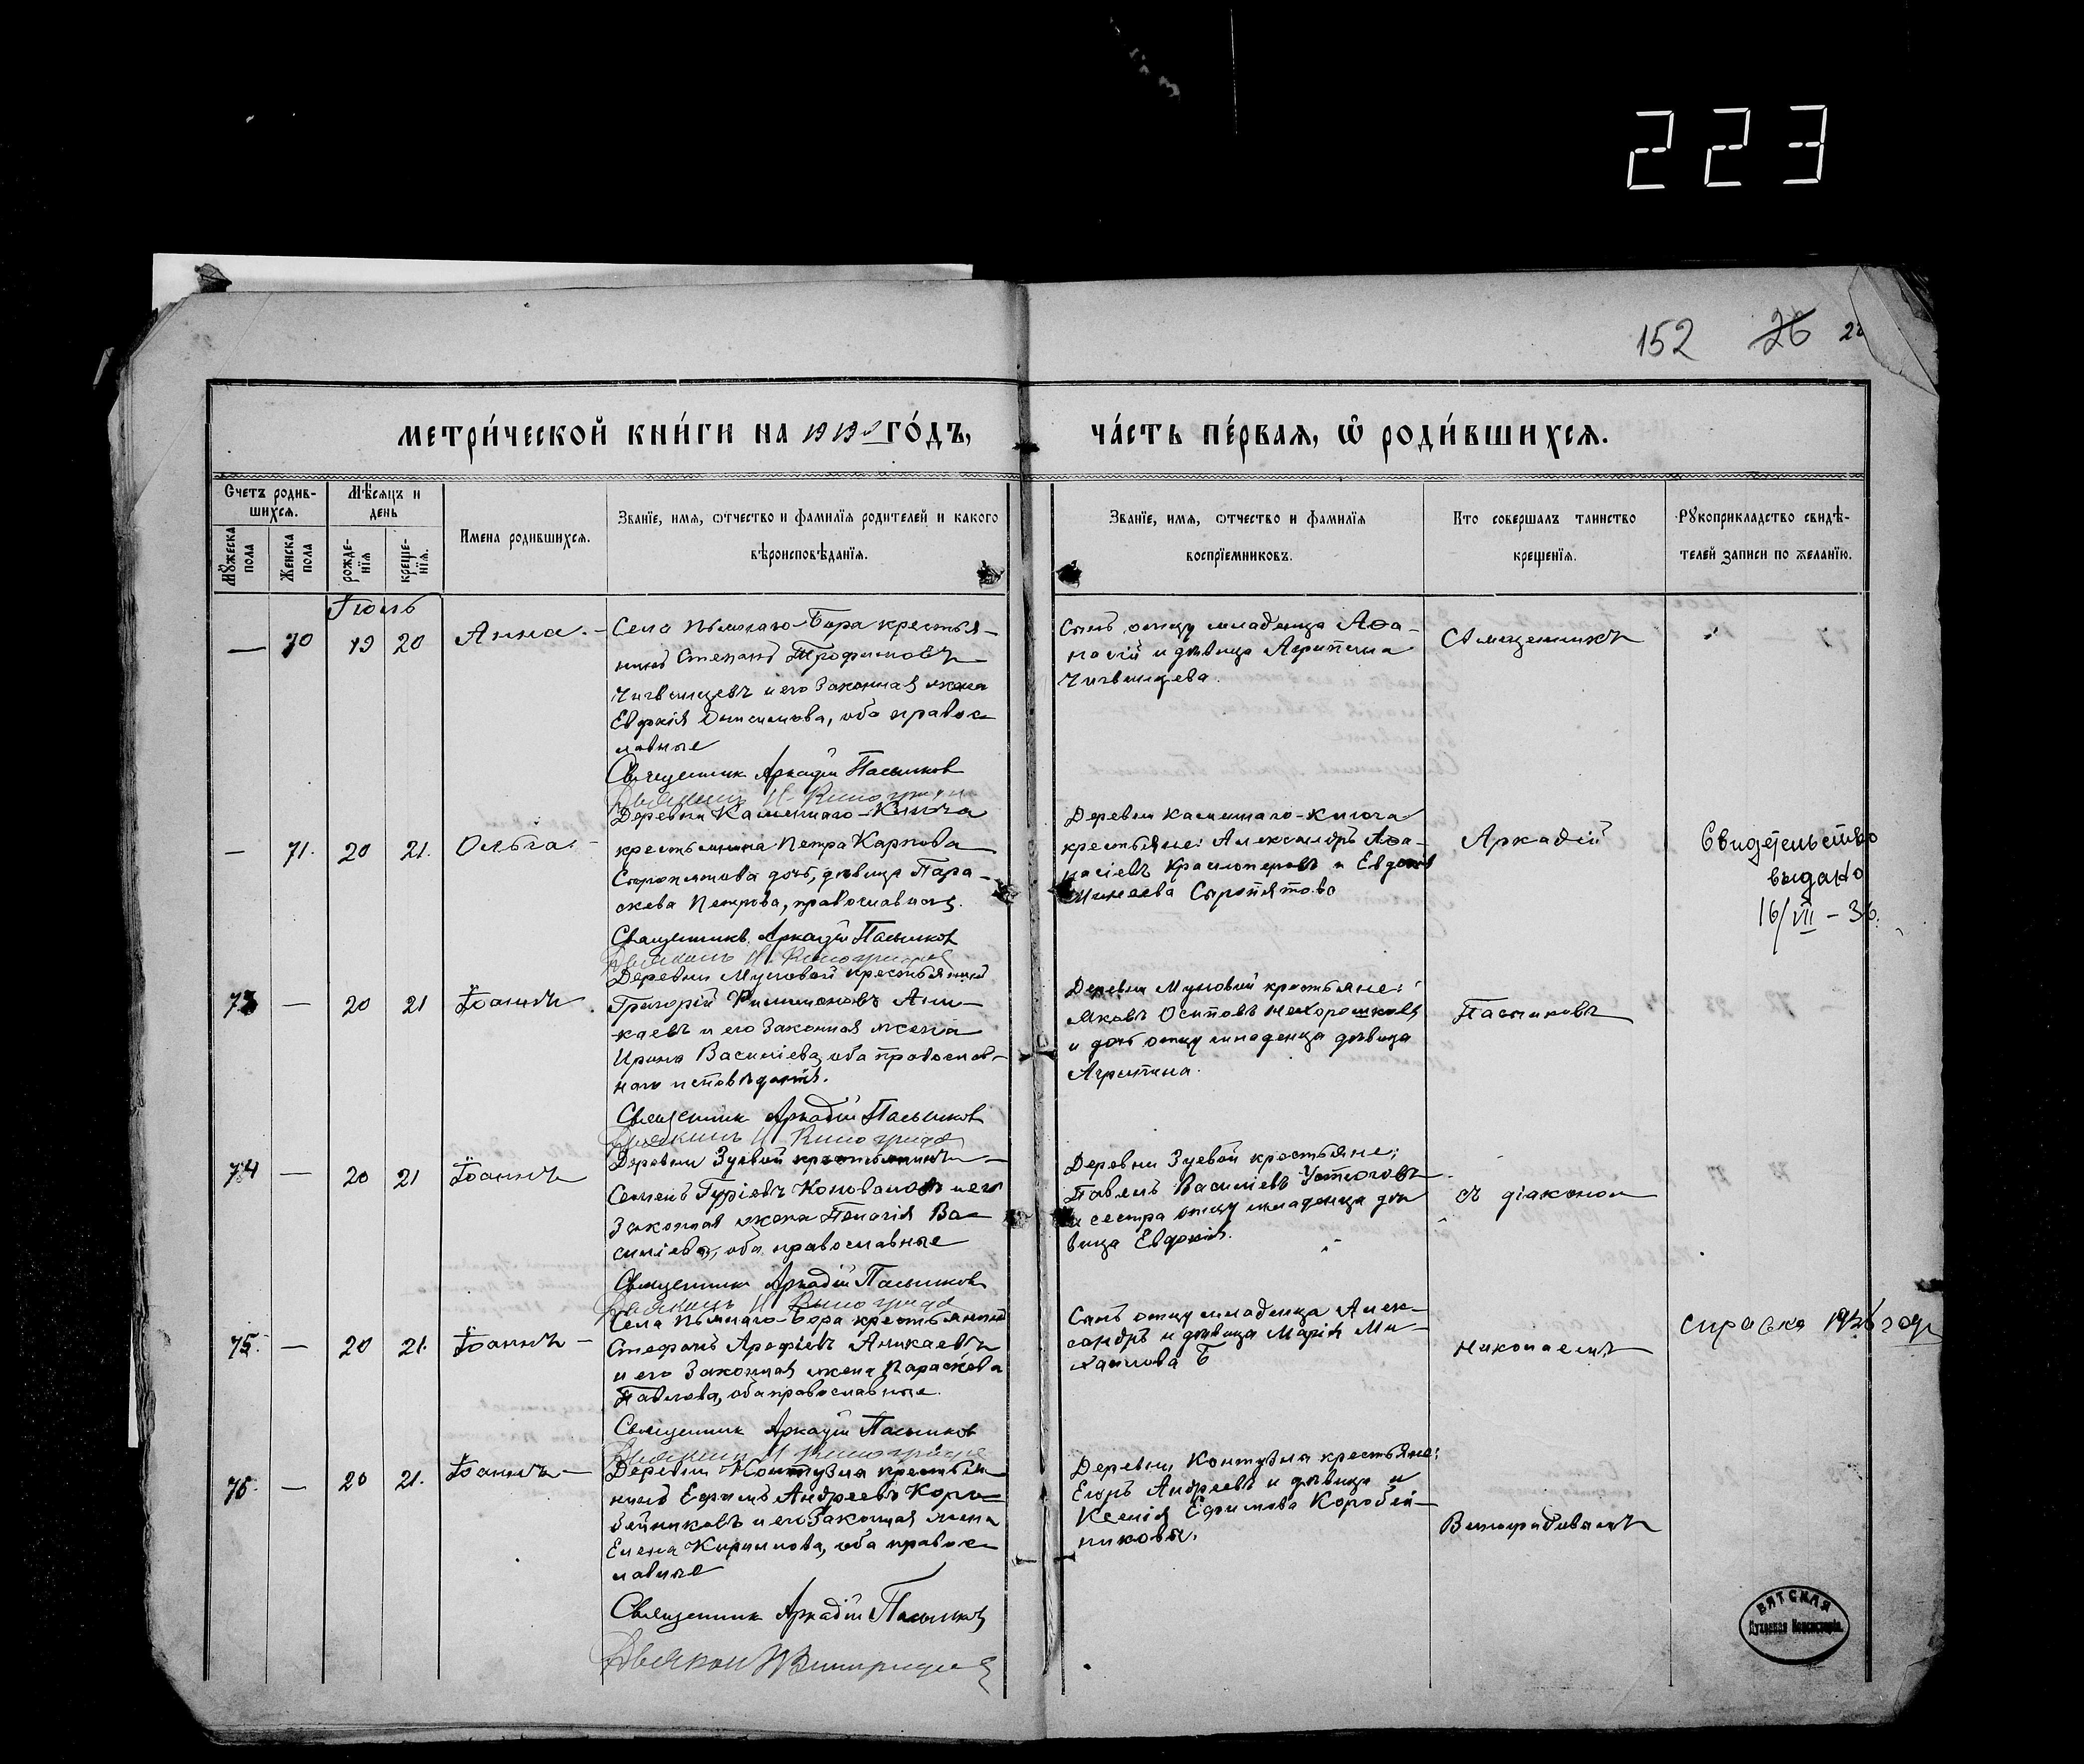 223
152 26
МЕТРИ́ЧЕСКОЙ КНИ́ГИ НА 1913 ГО́ДЪ,
ЧА́СТЬ ПЕ́РВАЯ, Ѡ҆ РОДИ́ВШИХСЯ.
Счетъ родив-
шихся.
Мѣсяцъ и
день
Мꙋжеска
пола
Женска
пола
рожде-
нїя
креще-
нїя.
Имена родившихся.
Званїе, имя, ѡтчество и фамилїя родителей и какого
вѣроисповѣданїя.
Званїе, имя, ѡтчество и фамилїя
воспрїемниковъ.
Кто совершалъ таинство
крещенїя.
Рꙋкоприкладство свидѣ-
телей записи по желанїю.
Іюль
— 70 19 20 Анна. –
Села Пьянаго-Бора крестья-
нинъ Степанъ Трофимовъ
Чигвинцевъ и его законная жена
Евдокія Онисимова, оба правос-
лавные
Священник Аркадій Пасынков
Сынъ отцу младенца Афа-
насій и дѣвица Агрипина
Чигвинцева.
Священникъ
— 71. 20 21. Ольга. –
Деревни Каменнаго-Ключа
крестьянина Петра Карпова
Сыропятова дочь, дѣвица Пара-
скева Петрова, православная.
Священникъ Аркадій Пасынков
Деревни Каменнаго-Ключа
крестьяне: Александръ Афа-
насіевъ Красноперовъ и Евдокія
Минеева Сыропятова
Аркадій
Свидетельство
выдано
16/VII – 36.
73 — 20 21 Іоаннъ.
Деревни Муновой крестьянинъ
Григорій Филимоновъ Ани-
каевъ и его законная жена
Ирина Василіева, оба православ-
наго исповѣданія.
Священник Аркадій Пасынков
Деревни Муновой крестьяне:
Яковъ Осиповъ Нехорошковъ
и дочь отцу младенца дѣвица
Агрипина.
Пасынковъ
74 — 20 21 Іоаннъ
Деревни Зуевой крестьянинъ
Семенъ Гуріевъ Коноваловъ и его
законная жена Пелагія Ва-
силіева, оба православные
Священник Аркадій Пасынков
Деревни Зуевой крестьяне:
Павелъ Василіевъ Устюговъ
и сестра отцу младенца дѣ-
вица Евдокія.
съ діакономъ
75. — 20 21. Іоаннъ –
Села Пьянаго-Бора крестьянинъ
Стефанъ Арефіевъ Аникаевъ
и его законная жена Параскева
Павлова, оба православные.
Священник Аркадій Пасынков
Сынъ отцу младенца Алек-
сандръ и дѣвица Марія Ми-
хаилова Б
Николаемъ
справка 1926 году
76. — 20 21. Іоаннъ –
Деревни Контузла крестья-
нинъ Ефимъ Андреевъ Коро-
бейниковъ и его законная жена
Елена Кирилова, оба правос-
лавные
Священник Аркадій Пасынков
Дьякон Н Виноградов
Деревни Контузла крестьяне:
Егоръ Андреевъ и дѣвица
Ксенія Ефимова Коробей-
никовы.
Виноградовымъ
ВЯТСКАЯ
Духовная Консисторія.